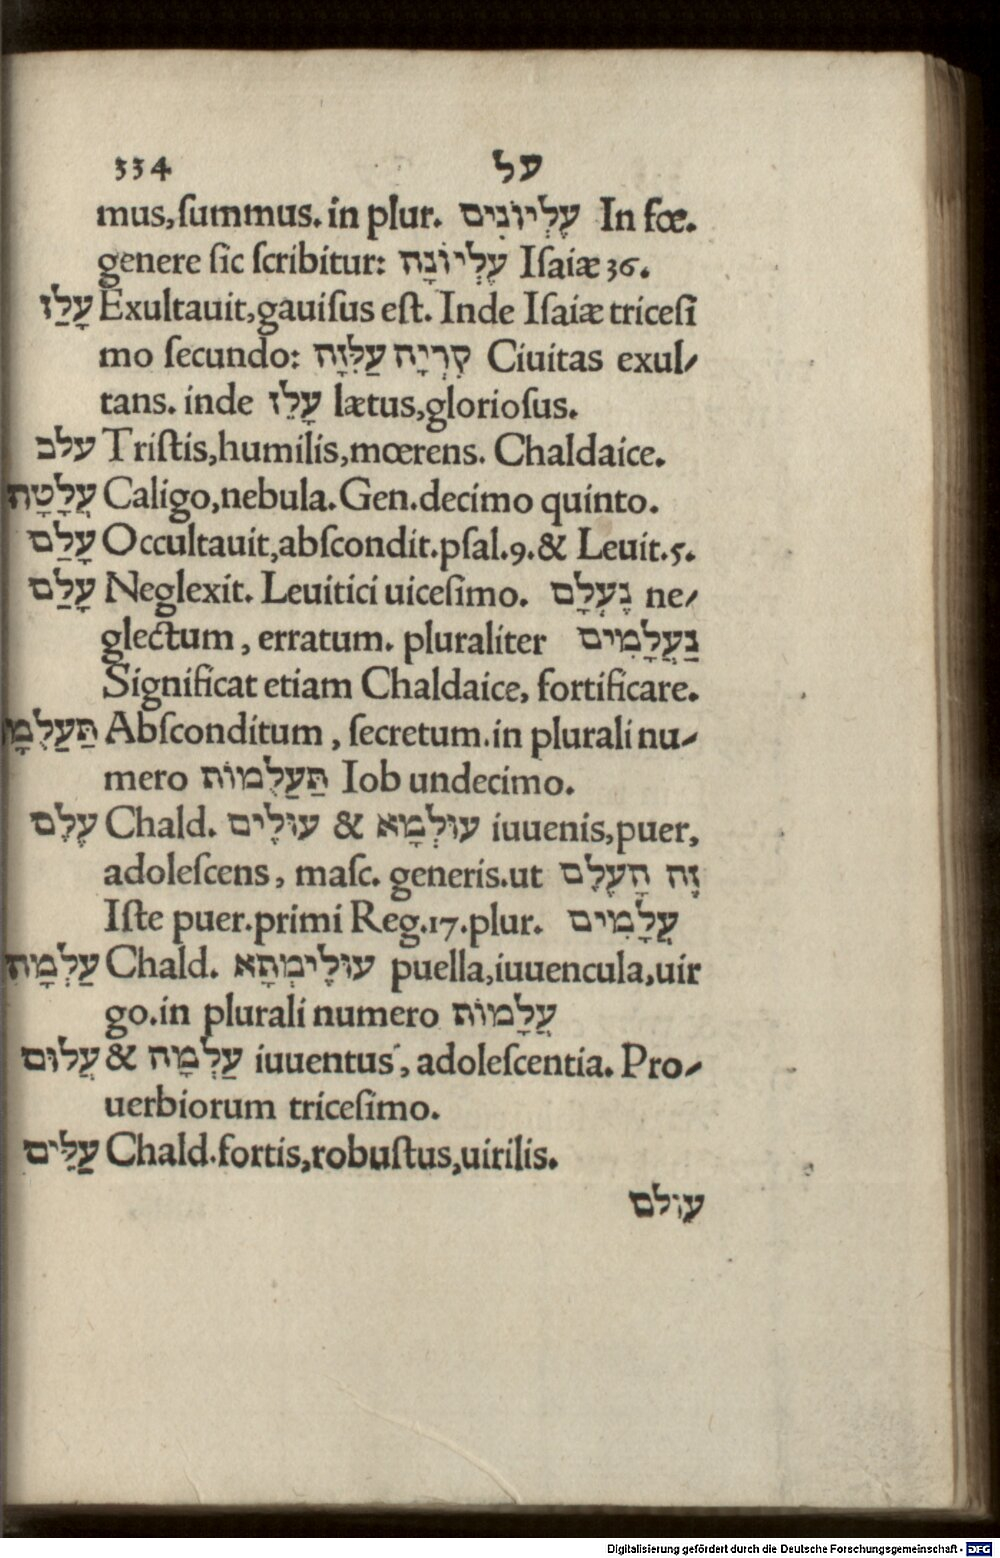 334 על
mus,ſummus. in plur. עֶלְיוֹנִים In fœ.
genere ſic ſcribitur: עֶלְיוֹנָה Iſaiæ 36.
עָלַז Exultauit,gauiſus eſt. Inde Iſaiæ triceſi
mo ſecundo: קִרְיָה עַלִּזָה Ciuitas exul/
tans. inde עָלֵז lætus,glorioſus.
עלב Triſtis,humilis,mœrens. Chaldaice.
עֲלָטָה Caligo,nebula. Gen.decimo quinto.
עָלַם Occultauit,abſcondit.pſal.9.& Leuit.5.
עָלַם Neglexit. Leuitici uiceſimo. נֶעְלָם ne/
glectum, erratum. pluraliter נַעֲלָמִים
Significat etiam Chaldaice, fortificare.
Abſconditum, ſecretum.in plurali nu/
mero תַּעֲלֻמוֹת Iob undecimo.
עֶלֶם Chald. עוּלְמָא & עוּלֶים iuuenis,puer,
adoleſcens, maſc. generis.ut זֶה הָעֶלֶם
Iſte puer.primi Reg.17.plur. עֲלָמִים
עַלְמָה Chald. עוּלֶימְתָא puella,iuuencula,uir
go.in plurali numero עֲלָמוֹת
עֲלוּם & עַלְמָה iuuentus, adoleſcentia. Pro/
uerbiorum triceſimo.
עַלִּים Chald.fortis,robuſtus,uirilis.
עולם
Digitalisierung gefördert durch die Deutsche Forschungsgemeinschaft - DFG